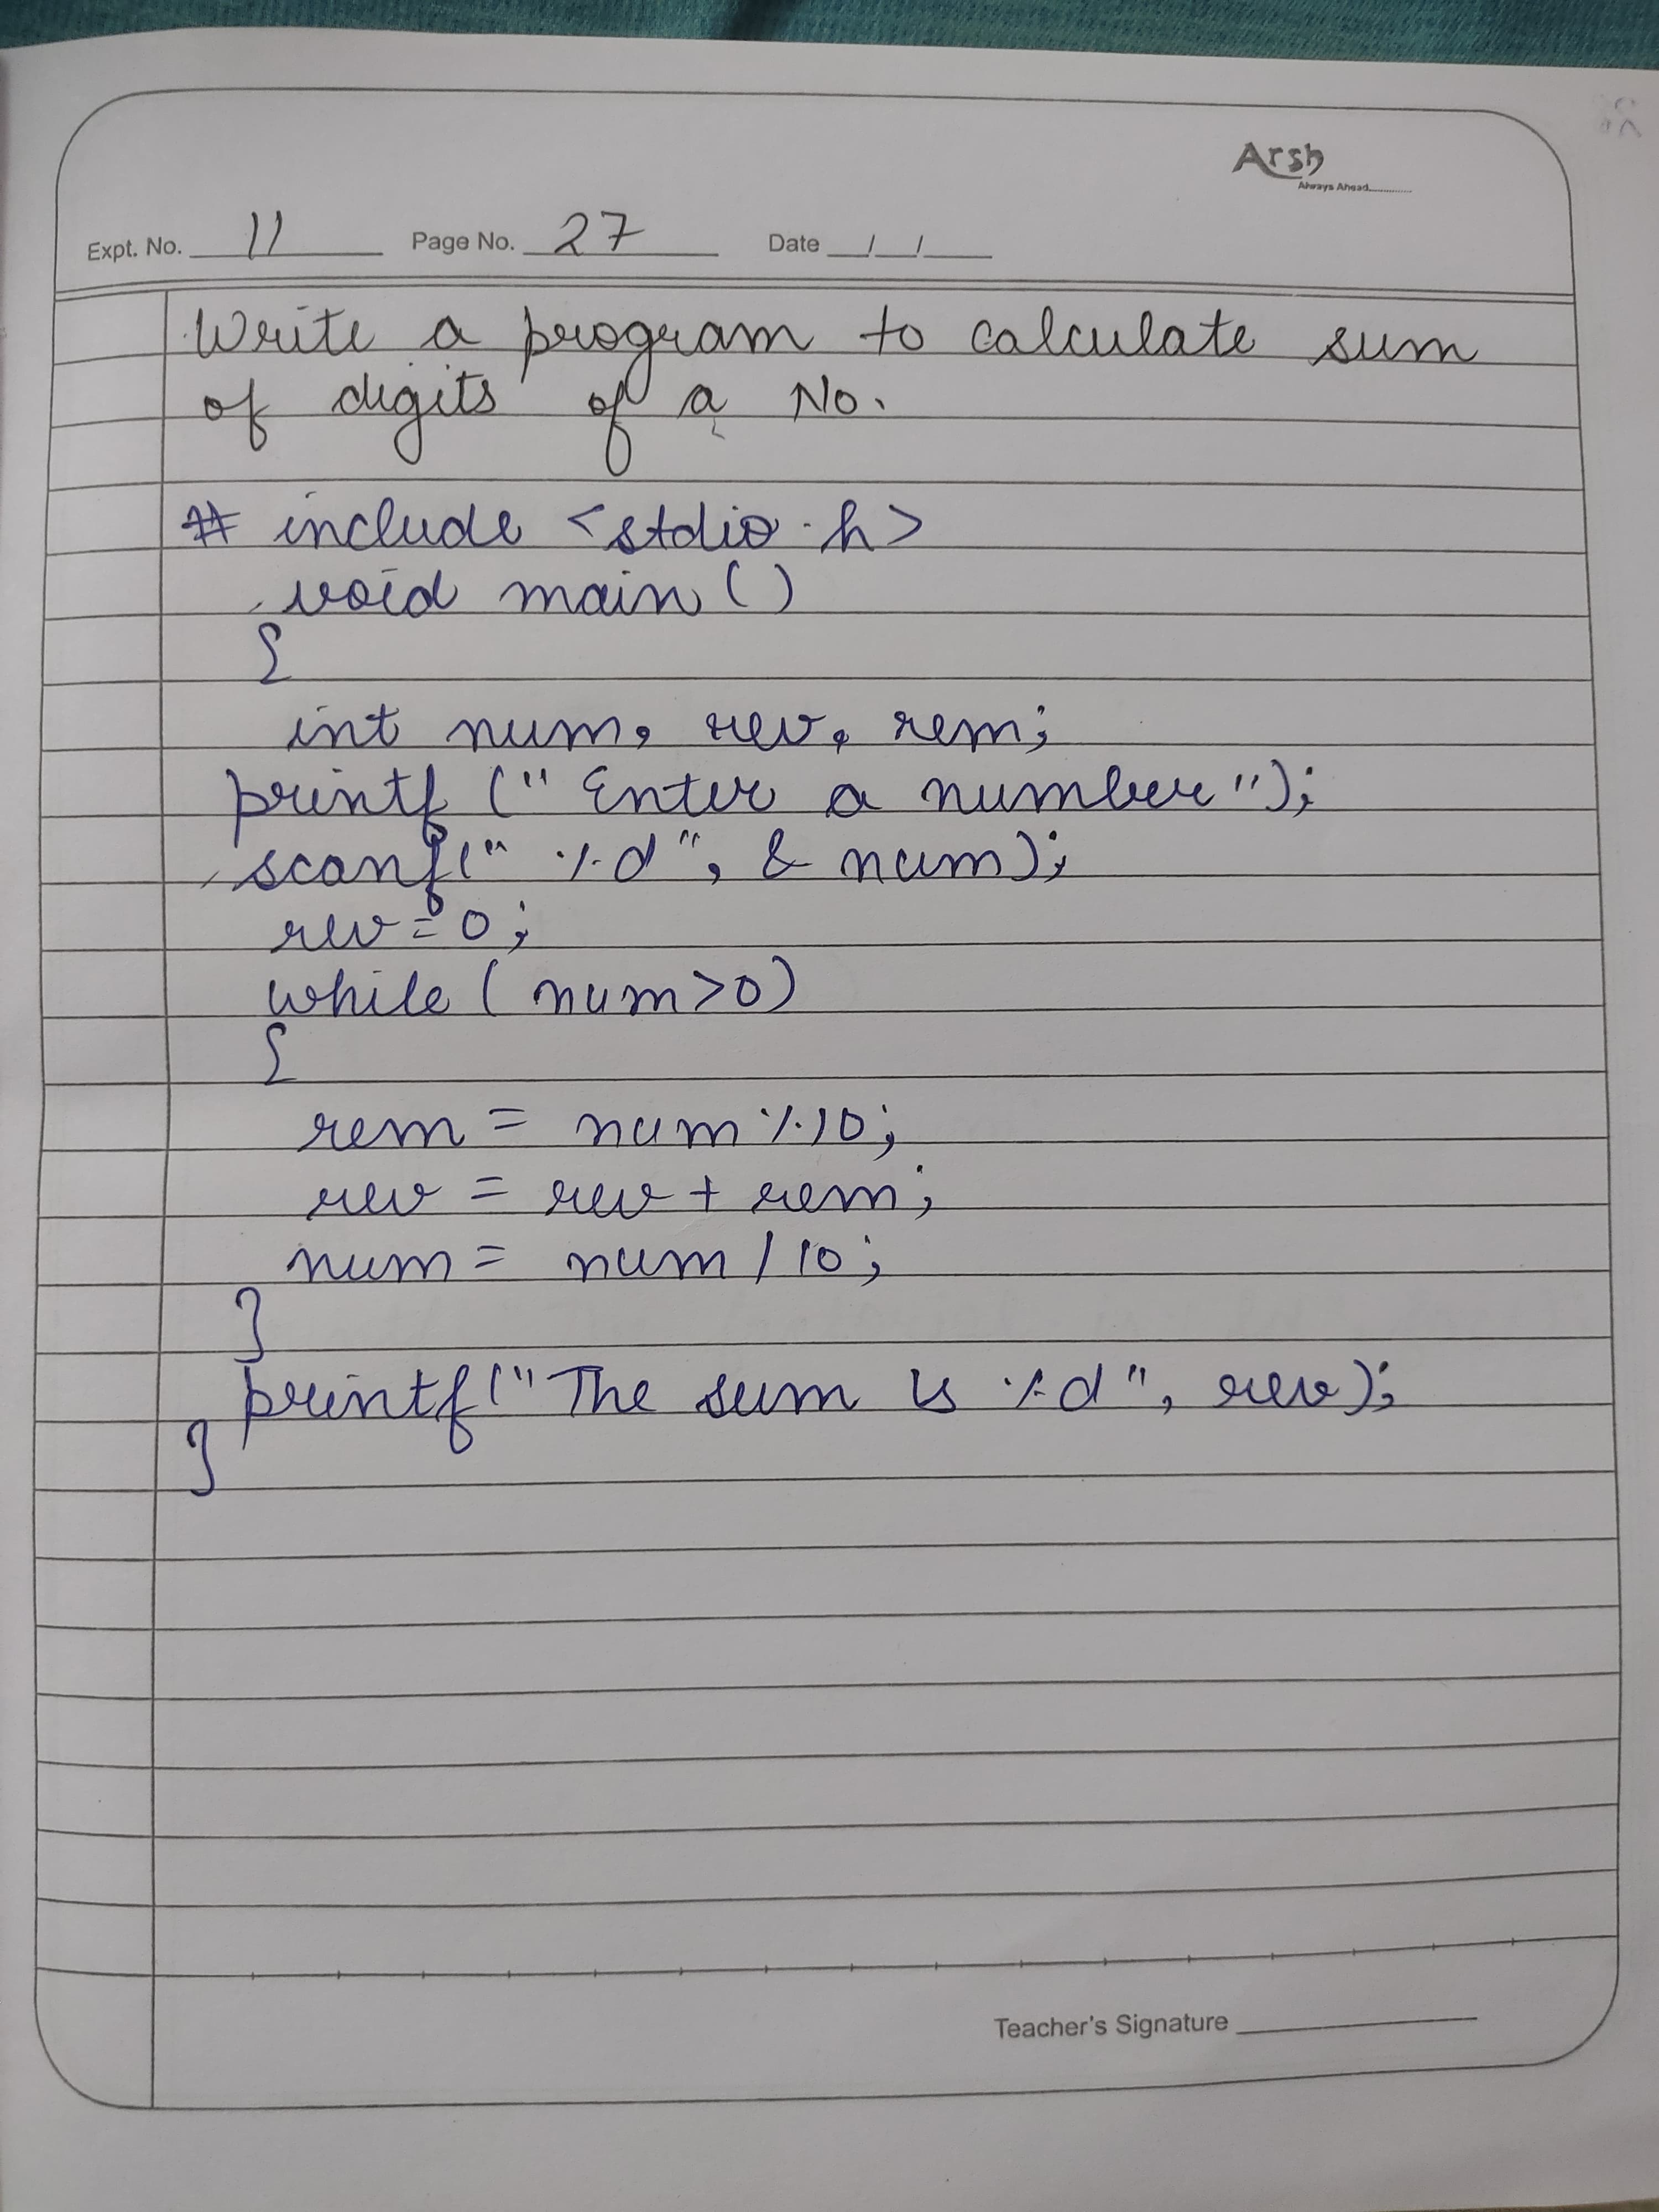 Arsh
Always Ahead..............
Expt. No. 11 Page No. 27 Date / /
Write a program to calculate sum
of digits of a No.
# include <stdio.h>
void main ()
{
int num, rev, rem;
printf (" Enter a number");
scanf(" %d", & num);
rev = 0;
while ( num>0)
{
rem = num %10;
rev = rev + rem;
num = num / 10;
}
printf("The sum is %d", rev);
}
Teacher's Signature